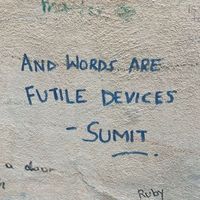 AND WORDS ARE
FUTILE DEVICES
- SUMIT
a door
Ruby